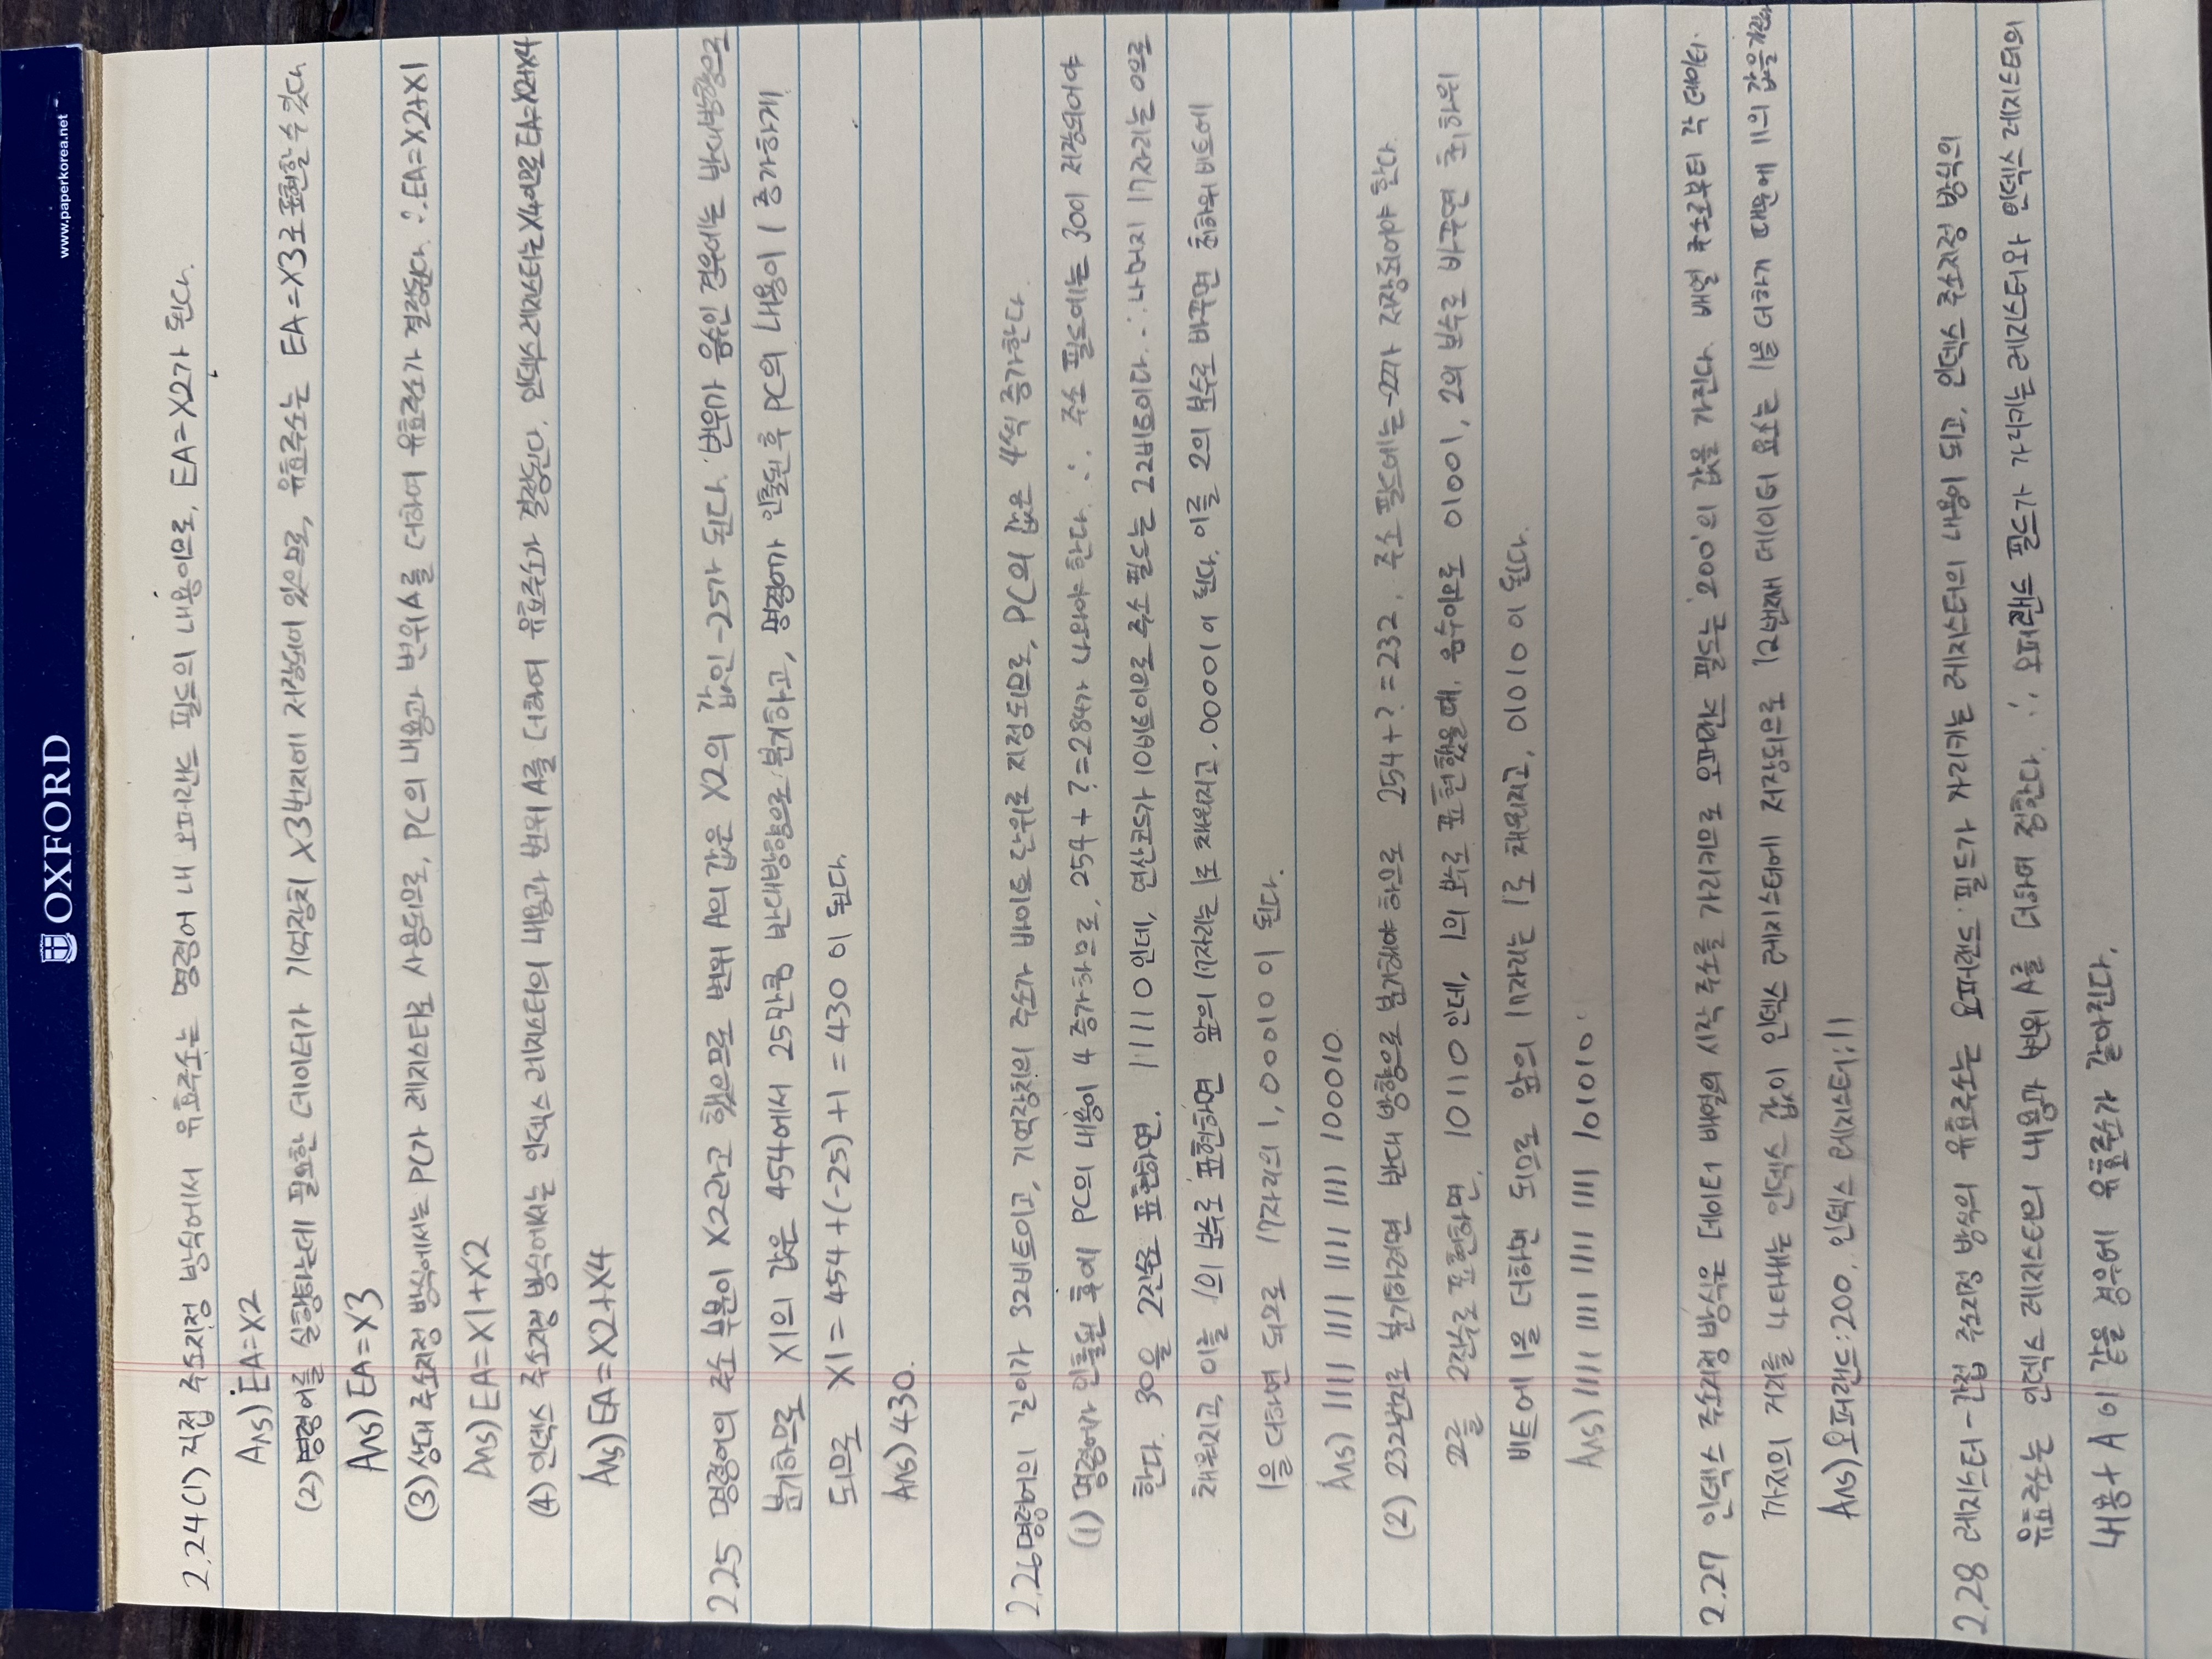 OXFORD
www.paperkorea.net
2.24 (1) 직접 주소지정 방식에서 유효주소는 명령어 내 오퍼랜드 필드의 내용이므로, EA=X2가 된다.
Ans) EA=X2
(2) 명령어를 실행하는데 필요한 데이터가 기억장치 X3번지에 저장되어 있으므로, 유효주소는 EA=X3로 표현할 수 있다
Ans) EA=X3
(3) 상대 주소지정 방식에서는 PC가 레지스터로 사용되므로, PC의 내용과 변위 A를 더하여 유효주소가 결정된다. ∴ EA=X2+X1
Ans) EA=X1+X2
(4) 인덱스 주소지정 방식에서는 인덱스 레지스터의 내용과 변위 A를 더하여 유효주소가 결정된다. 인덱스 레지스터는 X4이므로 EA=X2+X4
Ans) EA=X2+X4
2.25 명령어의 주소 부분이 X2라고 했으므로 변위 A의 값은 X2의 값인 -25가 된다. 변위가 음수인 경우에는 반대방향으로
분기하므로 X1의 값은 454에서 25만큼 반대방향으로 분기하고, 명령어가 인출된 후 PC의 내용이 1 증가하게
되므로 X1 = 454 + (-25) + 1 = 430 이 된다.
Ans) 430.
2.26 명령어의 길이가 32비트이고, 기억장치의 주소가 바이트 단위로 지정되므로, PC의 값은 4씩 증가한다.
(1) 명령어가 인출된 후에 PC의 내용이 4 증가하므로, 254 + ? = 284가 나와야 한다. ∴ 주소 필드에는 30이 저장되어야
한다. 30을 2진수로 표현하면. 11110 인데, 연산코드가 10비트이므로 주소 필드는 22비트이다. ∴ 나머지 17자리는 0으로
채워지고, 이를 1의 보수로 표현하면 앞의 17자리는 1로 채워지고, 00001이 된다. 이를 2의 보수로 바꾸면 최하위 비트에
1을 더하면 되므로 17자리의 1, 00010 이 된다.
Ans) 1111 1111 1111 1111 100010
(2) 232번지로 분기하려면 반대 방향으로 분기해야 하므로 254 + ? = 232. 주소 필드에는 -22가 저장되어야 한다.
22를 2진수로 표현하면, 10110 인데, 1의 보수로 표현했을 때, 음수이므로 01001, 2의 보수로 바꾸면 최하위
비트에 1을 더하면 되므로 앞의 17자리는 1로 채워지고, 01010 이 된다.
Ans) 1111 1111 1111 1111 101010
2.27 인덱스 주소지정 방식은 데이터 배열의 시작 주소를 가리키므로 오퍼랜드 필드는 '200'의 값을 가진다. 배열 주소로부터 각 데이터
까지의 거리를 나타내는 인덱스 값이 인덱스 레지스터에 저장되므로 12번째 데이터 요소는 11을 더하기 때문에 11의 값을 가진다
Ans) 오퍼랜드: 200, 인덱스 레지스터: 11
2.28 레지스터-간접 주소지정 방식의 유효주소는 오퍼랜드 필드가 가리키는 레지스터의 내용이 되고, 인덱스 주소지정 방식의
유효주소는 인덱스 레지스터의 내용과 변위 A를 더하여 정한다. ∴ 오퍼랜드 필드가 가리키는 레지스터와 인덱스 레지스터의
내용 + A 이 같을 경우에 유효주소가 같아진다.